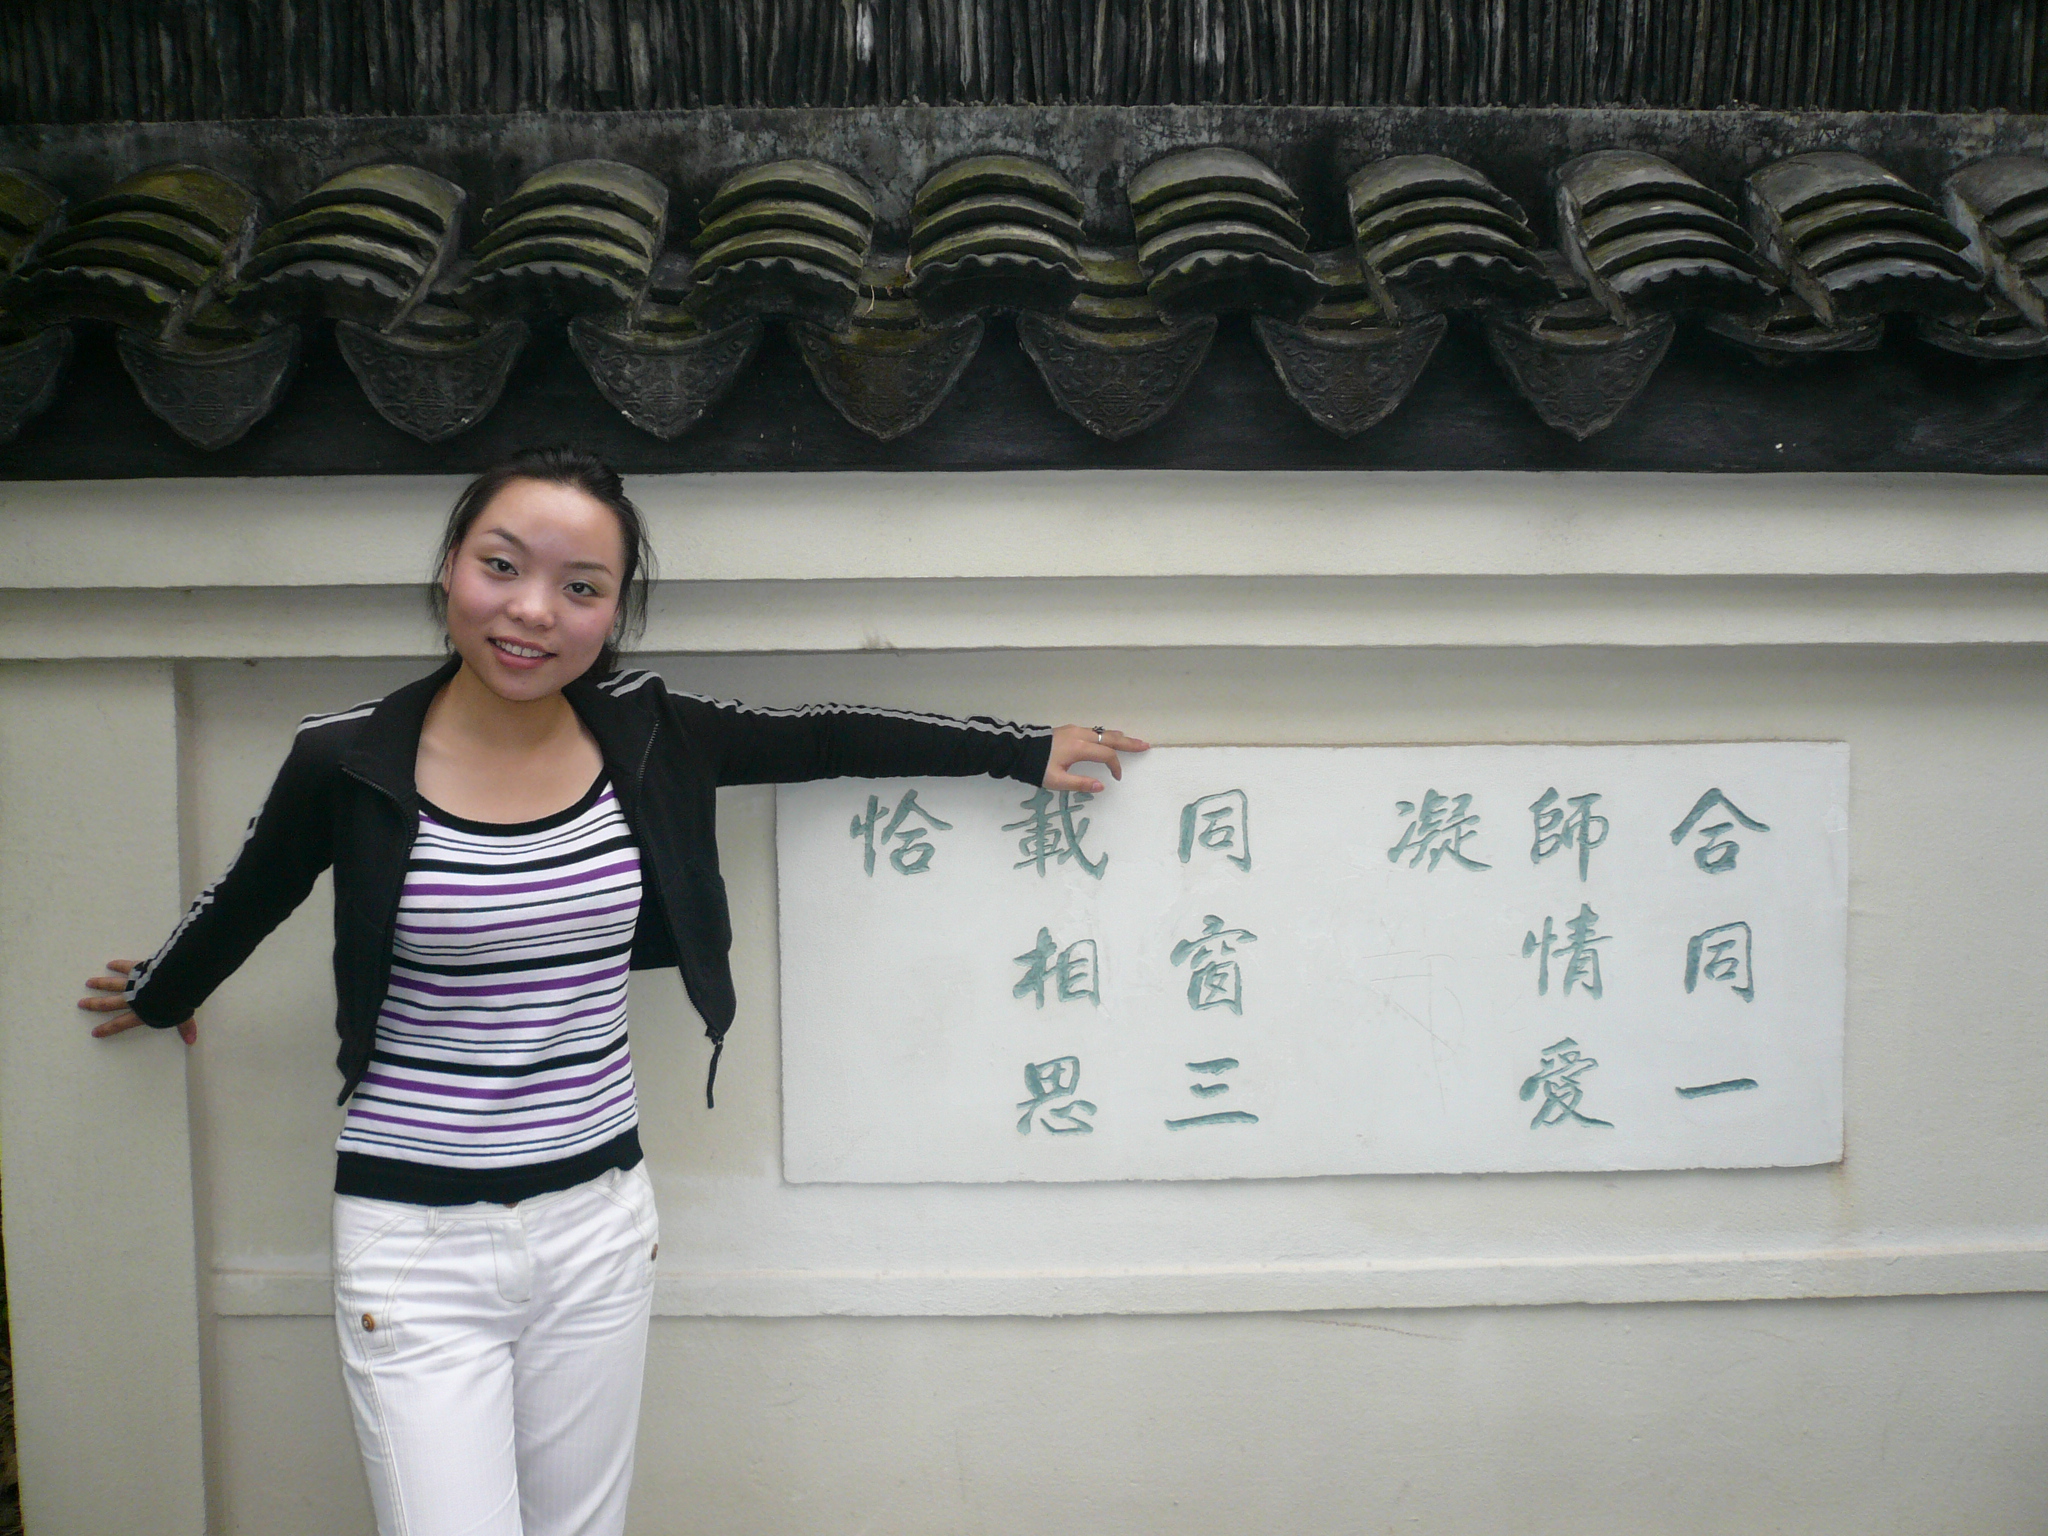 合同一
師情愛
凝
同窗三
載相思
恰